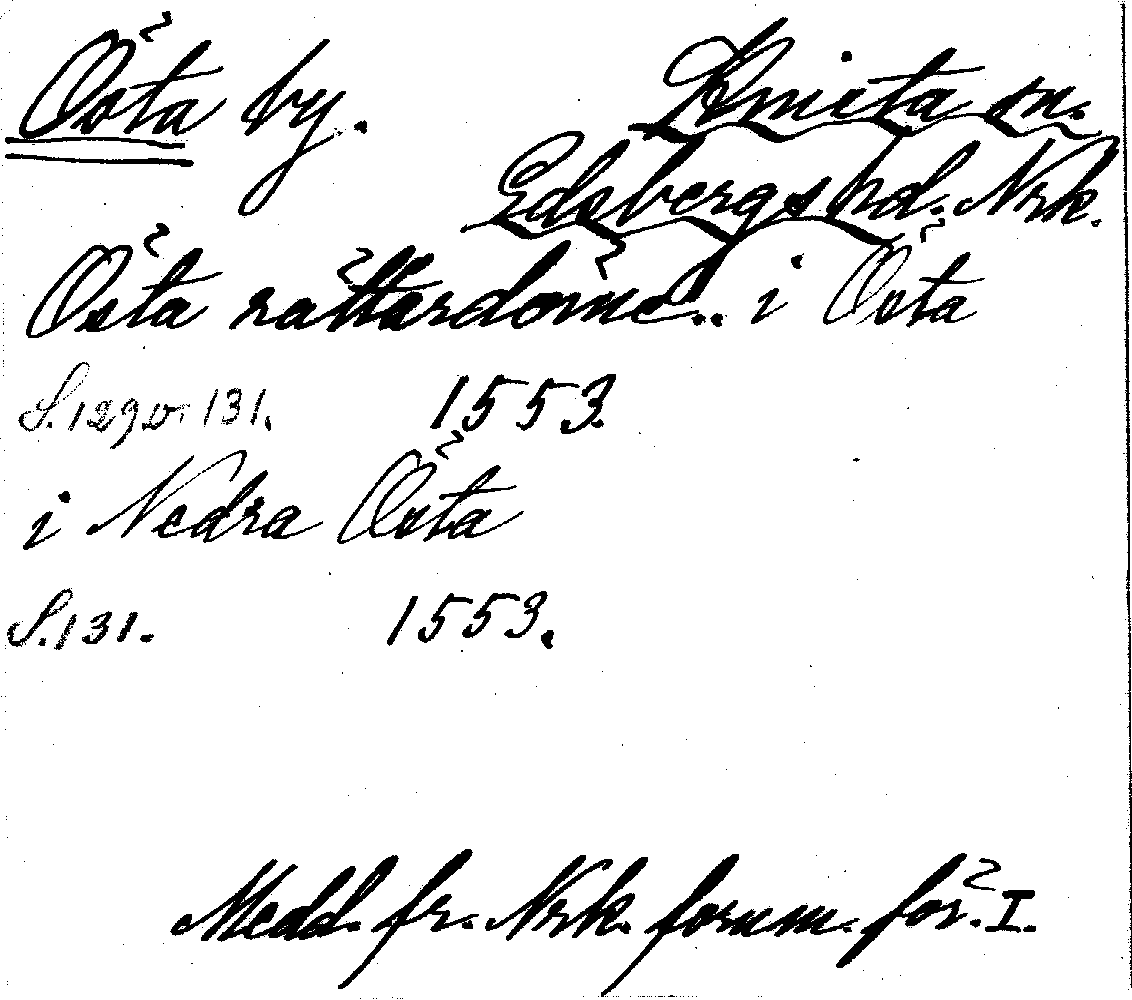 Östa by. Knista sn.
Edsbergs hd. Nrk.
Östa rättardöme.. i Östa
S. 129 o 131. 1553.
i Nedra Östa
S. 131. 1553.
Medd. fr. Nrk. fornm. för. I.